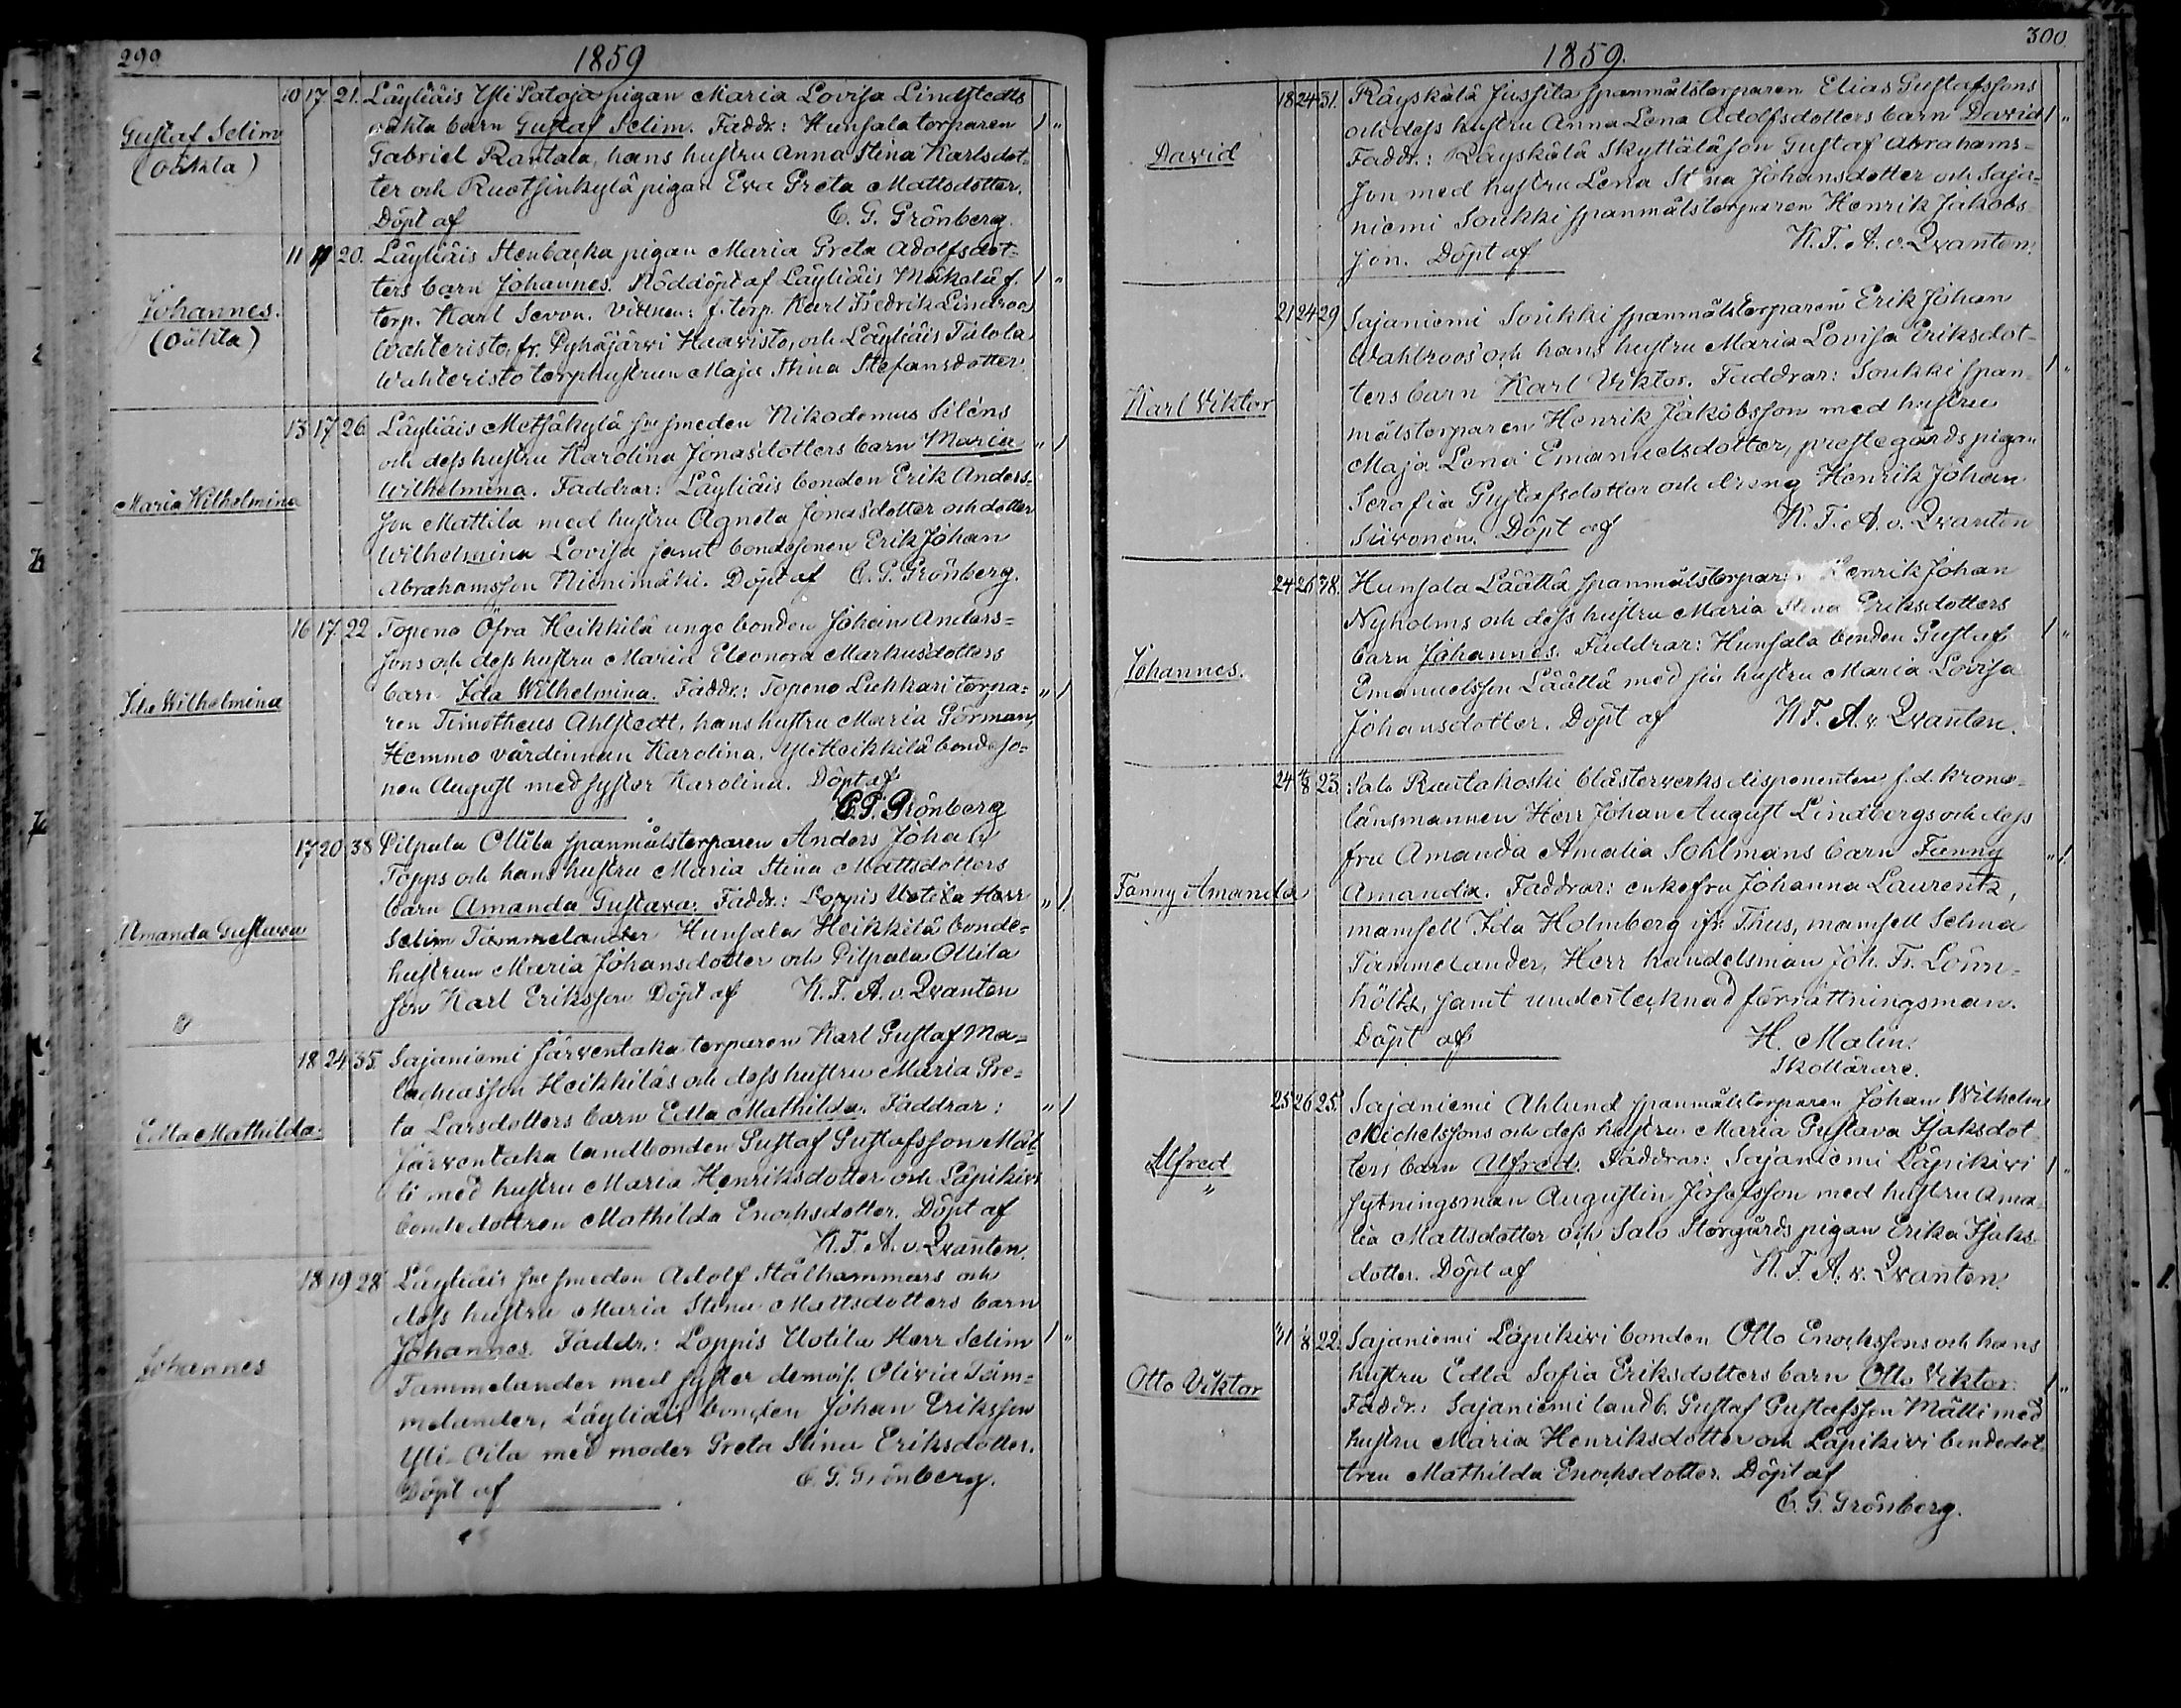 299
1859
Gustaf Selim
(oäkta)
10 17 21. Läyliäis Yli Patoja pigan Maria Lovisa Lindstedts
oäkta barn Gustaf Selim. Faddr.: Hunsala torparen 1 "
Gabriel Rantala, hans hustru Anna Stina Karlsdot-
ter och Ruotsinkylä pigan Eva Greta Mattsdotter.
Döpt af C. G. Grönberg.
Johannes.
(oäkta)
11 17 20. Läyliäis Stenbacka pigan Maria Greta Adolfsdot-
ters barn Johannes. Nöddöpt af Läyliäis Mäkelä f. 1 "
torp. Karl Sevon. Vittnen: f. torp. Karl Fredrik Lindroos
Wahteristo, fr. Pyhäjärvi Haavisto, och Läyliäis Tulola
Wahteristo torphustrun Maja Stina Stefansdotter.
Maria Wilhelmina
13 17 26. Läyliäis Metsäkylä sne smeden Nikodemus Siléns
och dess hustru Karolina Jonasdotters barn Maria " 1
Wilhelmina. Faddrar: Läyliäis bonden Erik Anders-
son Mattila med hustru Agneta Jonasdotter och dotter
Wilhelmina Lovisa samt bondesonen Erik Johan
Abrahamsson Niinimäki. Döpt af C. G. Grönberg.
Ida Wilhelmina
16 17. 22 Topeno Öfra Heikkilä unge bonden Johan Anders-
sons och dess hustru Maria Eleonora Markusdotters
barn Ida Wilhelmina. Faddr.: Topeno Liehkari torpa- " 1
ren Timotheus Ahlstedt, hans hustru Maria Görman,
Hemmo värdinnan Karolina, Yli Heikkilä bondeso-
nen August med syster Karolina. Döpt af
C. G. Grönberg
Amanda Gustava
17 20 38 Pilpala Ollila spanmålstorparen Anders Johan
Töpps och hans hustru Maria Stina Mattsdotters
barn Amanda Gustava. Faddr.: Loppis Uotila Herr " 1.
Selim Tammelander Hunsala Heikkilä bonde-
hustrun Maria Johansdotter och Pilpala Ollila
son Karl Eriksson Döpt af K. F. A. v. Qvanten
Edla Mathilda.
18 24 35. Sajaniemi Järventaka torparen Karl Gustaf Ma-
lachiasson Heikkiläs och dess hustru Maria Gre-
ta Larsdotters barn Edla Mathilda. Faddrar: " 1
Järventaka landbonden Gustaf Gustafsson Mät-
ti med hustru Maria Henriksdotter och Läpikivi
bondedottren Mathilda Enochsdotter. Döpt af
K. F. A. v. Qvanten.
Johannes
18 19 28 Läyliäis sne smeden Adolf Stålhammars och
dess hustru Maria Stina Mattsdotters barn
Johannes. Faddr.: Loppis Uotila Herr Selim 1 "
Tammelander med syster demois. Olivia Tam-
melander, Läyliäis bonden Johan Eriksson
Yli-Oila med moder Greta Stina Eriksdotter.
Döpt af C. G. Grönberg.
300.
1859.
David
18 24 31. Räyskälä Jussila spanmålstorparen Elias Gustafssons
och dess hustru Anna Lena Adolfsdotters barn David 1 "
Faddr.: Räyskälä Skyttälä son Gustaf Abrahams-
son med hustru Lena Stina Johansdotter och Saja-
niemi Soukki spanmålstorparen Henrik Jakobs-
son. Döpt af K. F. A. v. Qvanten.
Karl Viktor
21 24 29 Sajaniemi Soukki spanmålstorparen Erik Johan
Wahlroos och hans hustru Maria Lovisa Eriksdot-
ters barn Karl Viktor. Faddrar: Soukki span- 1 "
målstorparen Henrik Jakobsson med hustru
Maja Lena Emanuelsdotter, prestegårds pigan
Serafia Gustafsdotter och dreng Henrik Johan
Siivonen. Döpt af K. F. A. v. Qvanten
Johannes.
24 26 38. Hunsala Läätlä spanmålstorparen Henrik Johan
Nyholms och dess hustru Maria Stina Eriksdotters
barn Johannes. Faddrar: Hunsala bonden Gustaf 1 "
Emanuelsson Läätlä med sin hustru Maria Lovisa
Johansdotter. Döpt af K F. A. v. Qvanten.
Fanny Amanda
24 8 23. Salo Rautakoski blästerverks disponenten f.d. krono-
länsmannen Herr Johan August Lindbergs och dess
fru Amanda Amalia Sohlmans barn Fanny " 1.
Amanda. Faddrar: enkefru Johanna Laurentz,
mamsell Ida Holmberg ifr. Thus, mamsell Selma
Tammelander, Herr handelsman Joh. Fr. Lönn-
höltz, samt undertecknad förrättningsman.
Döpt af H. Malin.
Skollärare.
Alfred
"
25 26 25. Sajaniemi Ahlund spanmålstorparen Johan Wilhelm
Michelssons och dess hustru Maria Gustava Isaksdot-
ters barn Alfred. Faddrar: Sajaniemi Läpikivi 1 "
sytningsman Augustin Josefsson med hustru Ama-
lia Mattsdotter och Salo Storgårds pigan Erika Isaks-
dotter. Döpt af K. F. A. v. Qvanten.
Otto Viktor
8 22. Sajaniemi Läpikivi bonden Otto Enochssons och hans
hustru Edla Sofia Eriksdotters barn Otto Viktor. 1 "
Faddr.: Sajaniemi landb. Gustaf Gustafsson Mätti med
hustru Maria Henriksdotter och Läpikivi bondedot-
tren Mathilda Enochsdotter. Döpt af
C. G. Grönberg.